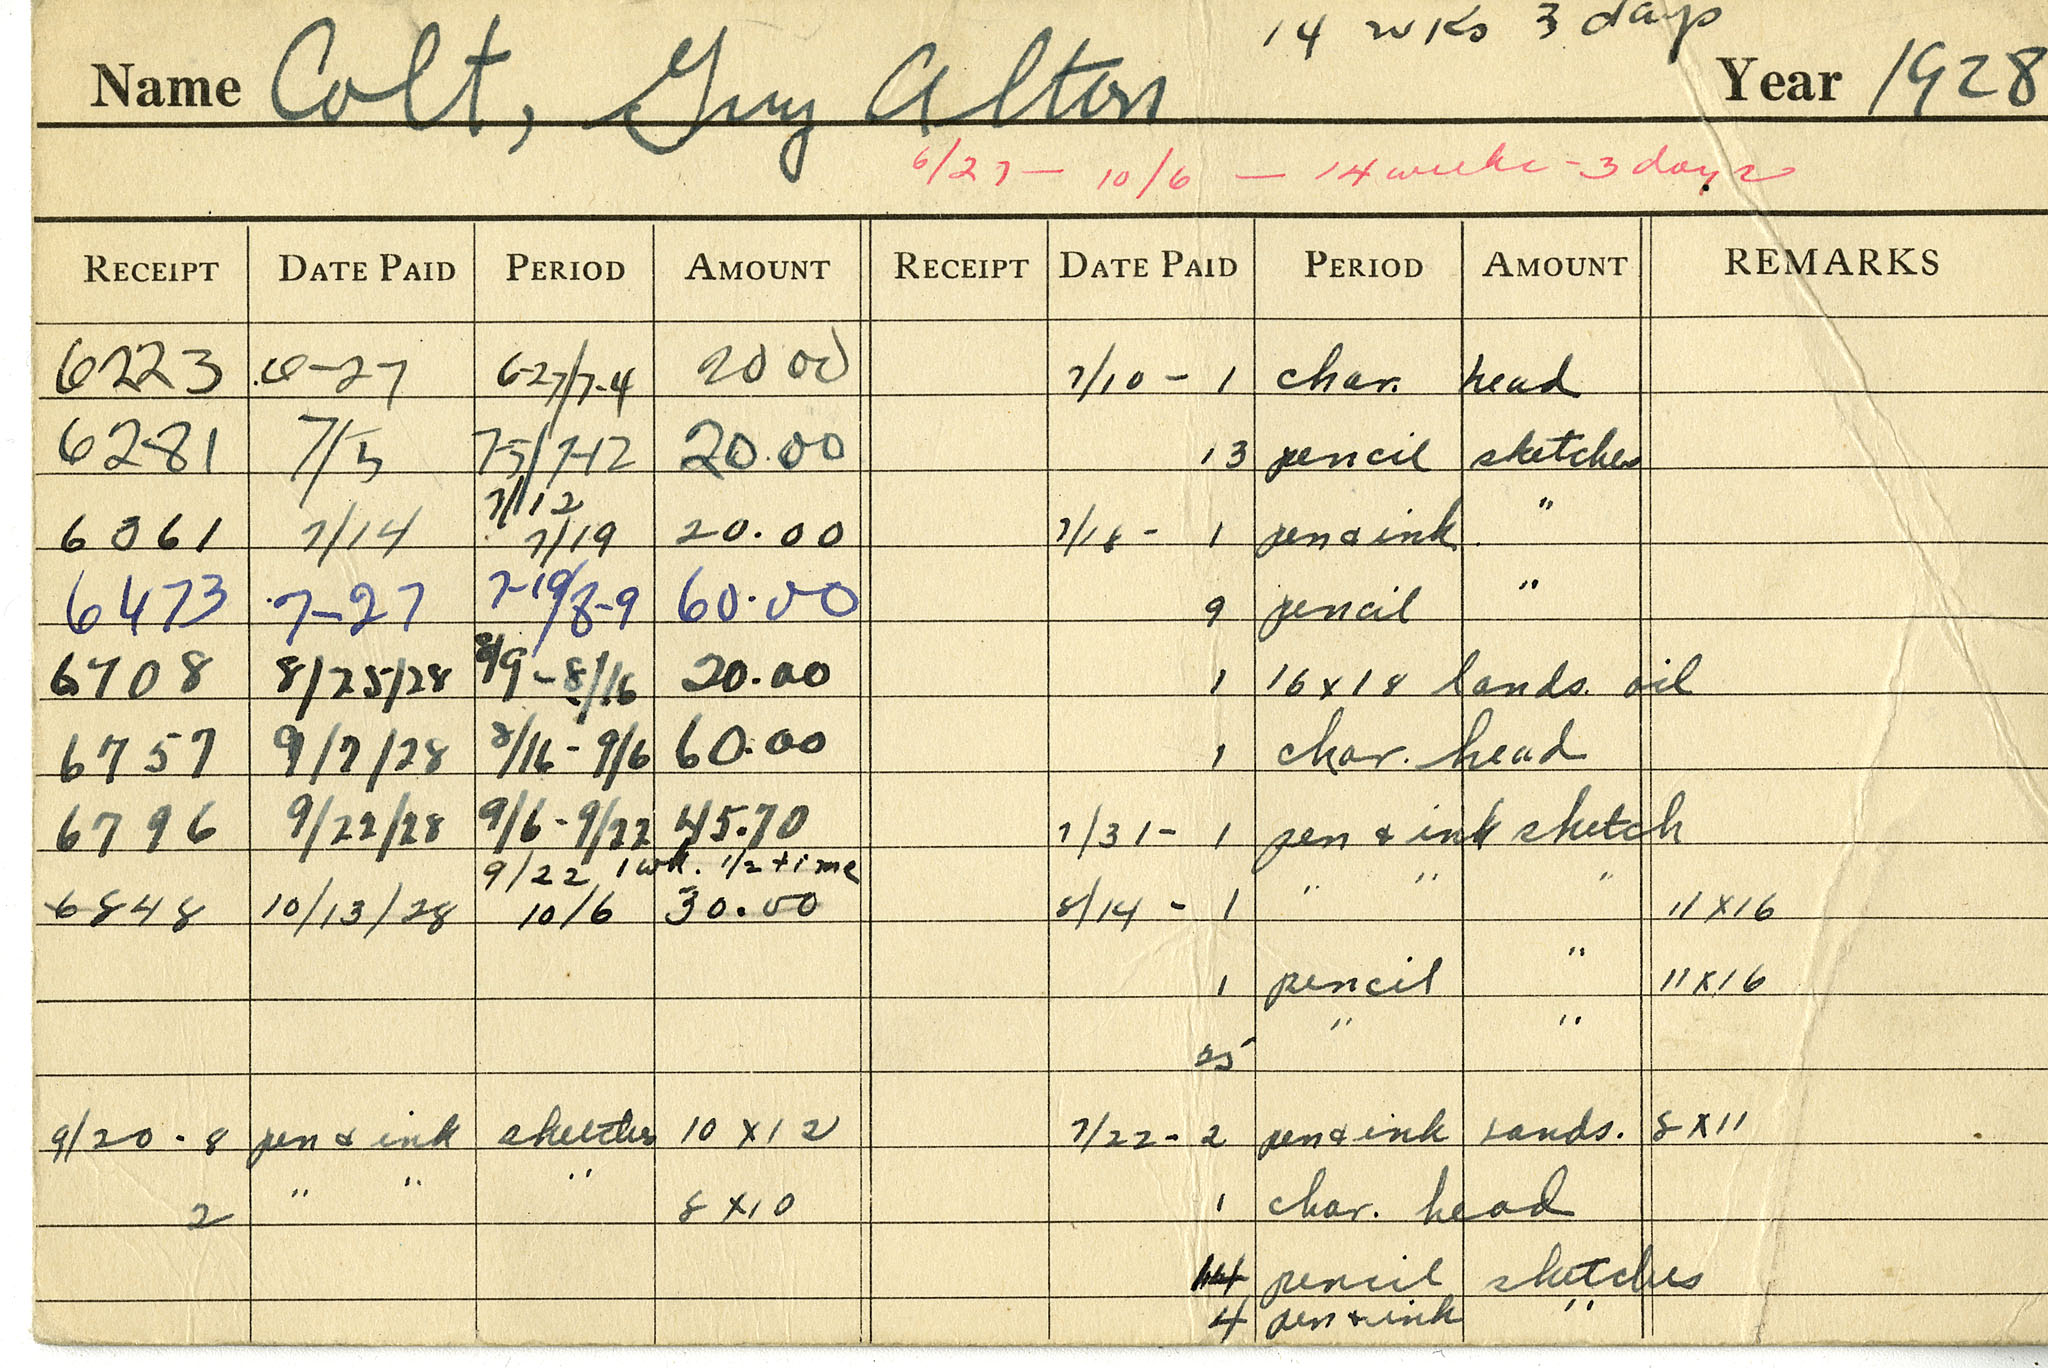 14 wks 3 days
Name Colt, Guy Alton Year 1928
6/27 — 10/6 — 14 weeks - 3 days
RECEIPT DATE PAID PERIOD AMOUNT RECEIPT DATE PAID PERIOD AMOUNT REMARKS
6223 6-27 6-27/7-4 20 00 7/10 - 1 char. head
6281 7/5 7-5/7-12 20.00 13 pencil sketches
7/12 "
6361 7/14 7/19 20.00 7/18 - 1 pen & ink
6473 7-27 7-19/8-9 60.00 9 pencil "
6708 8/25/28 8/9 - 8/16 20.00 1 16 x 18 lands. oil
6757 9/7/28 8/16 - 9/6 60.00 1 char. head
6796 9/22/28 9/6 - 9/22 45.70 7/31 - 1 pen & ink sketch
9/22 1 wk. 1/2 time " " "
6848 10/13/28 10/6 30.00 8/14 - 1 11 x 16
1 pencil " 11 x 16
25 " "
9/20 - 8 pen & ink sketches 10 x 12 7/22 - 2 pen & ink lands. 8 x 11
2 " " " 8 x 10 1 char. head
pencil sketches
4 pen & ink "